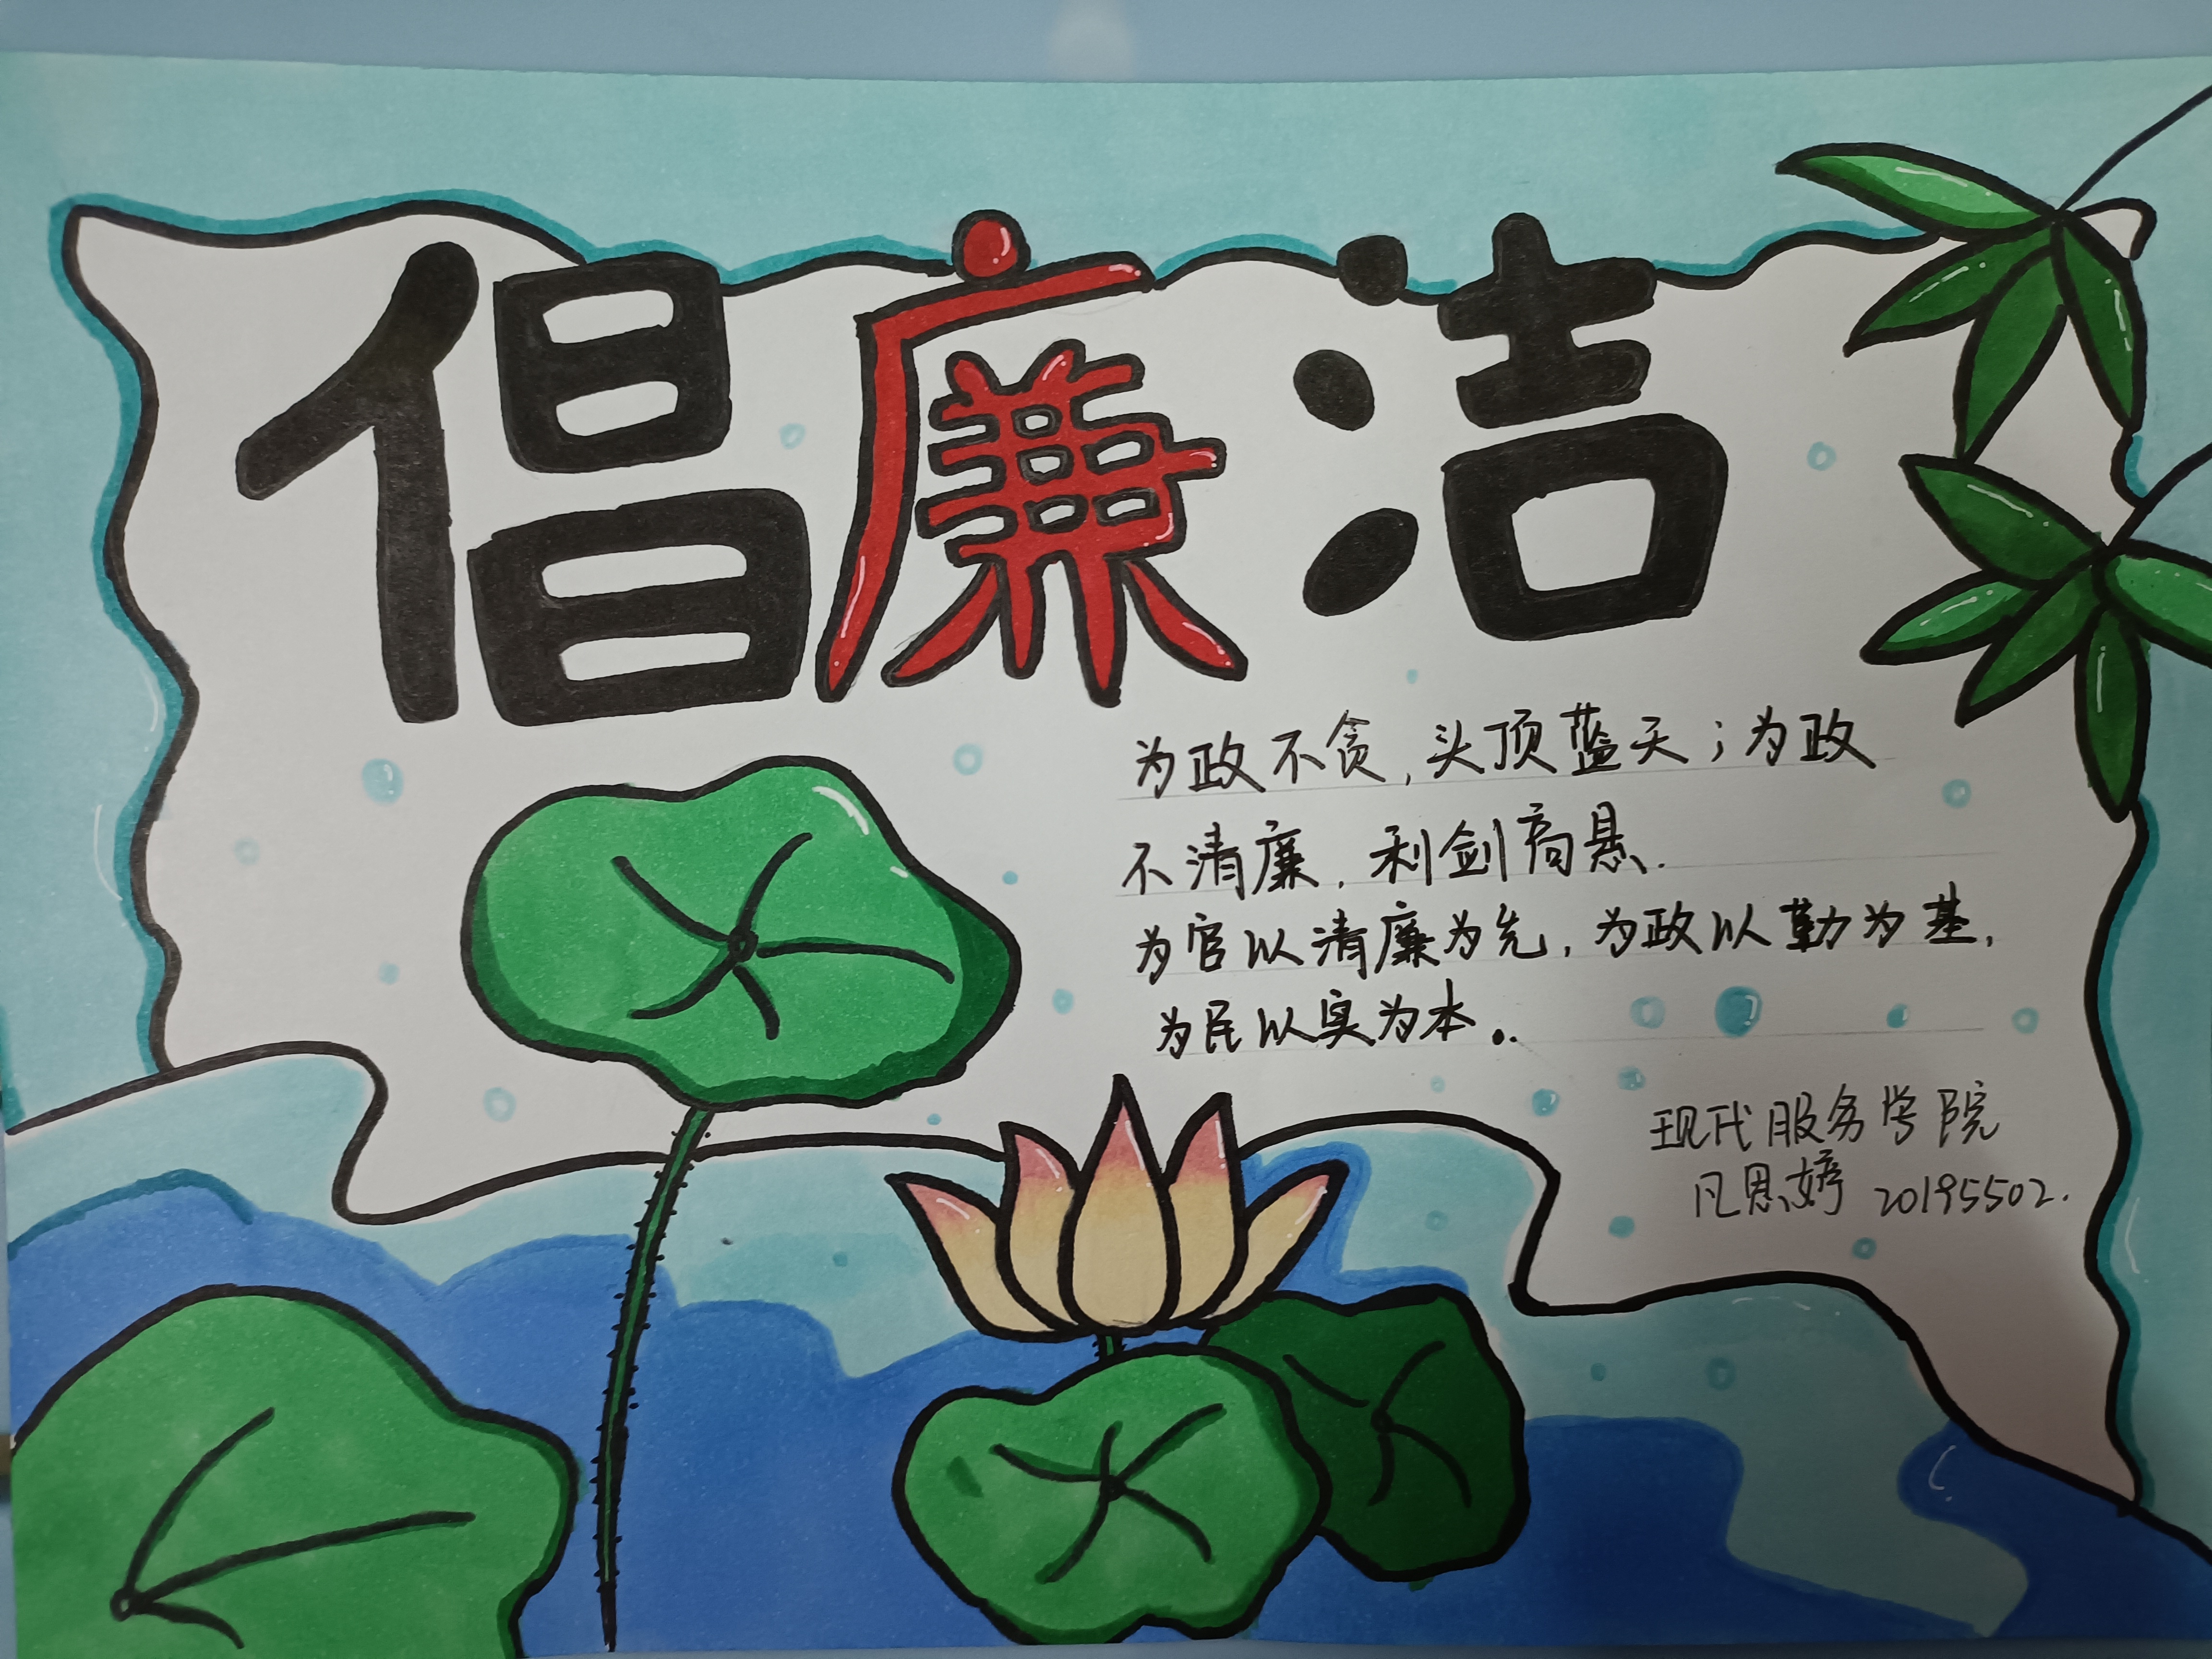 倡廉洁
为政不贪,头顶蓝天;为政
不清廉,利剑高悬.
为官以清廉为先,为政以勤为基,
为民以实为本。.
现代服务学院
凡思婷 20195502.